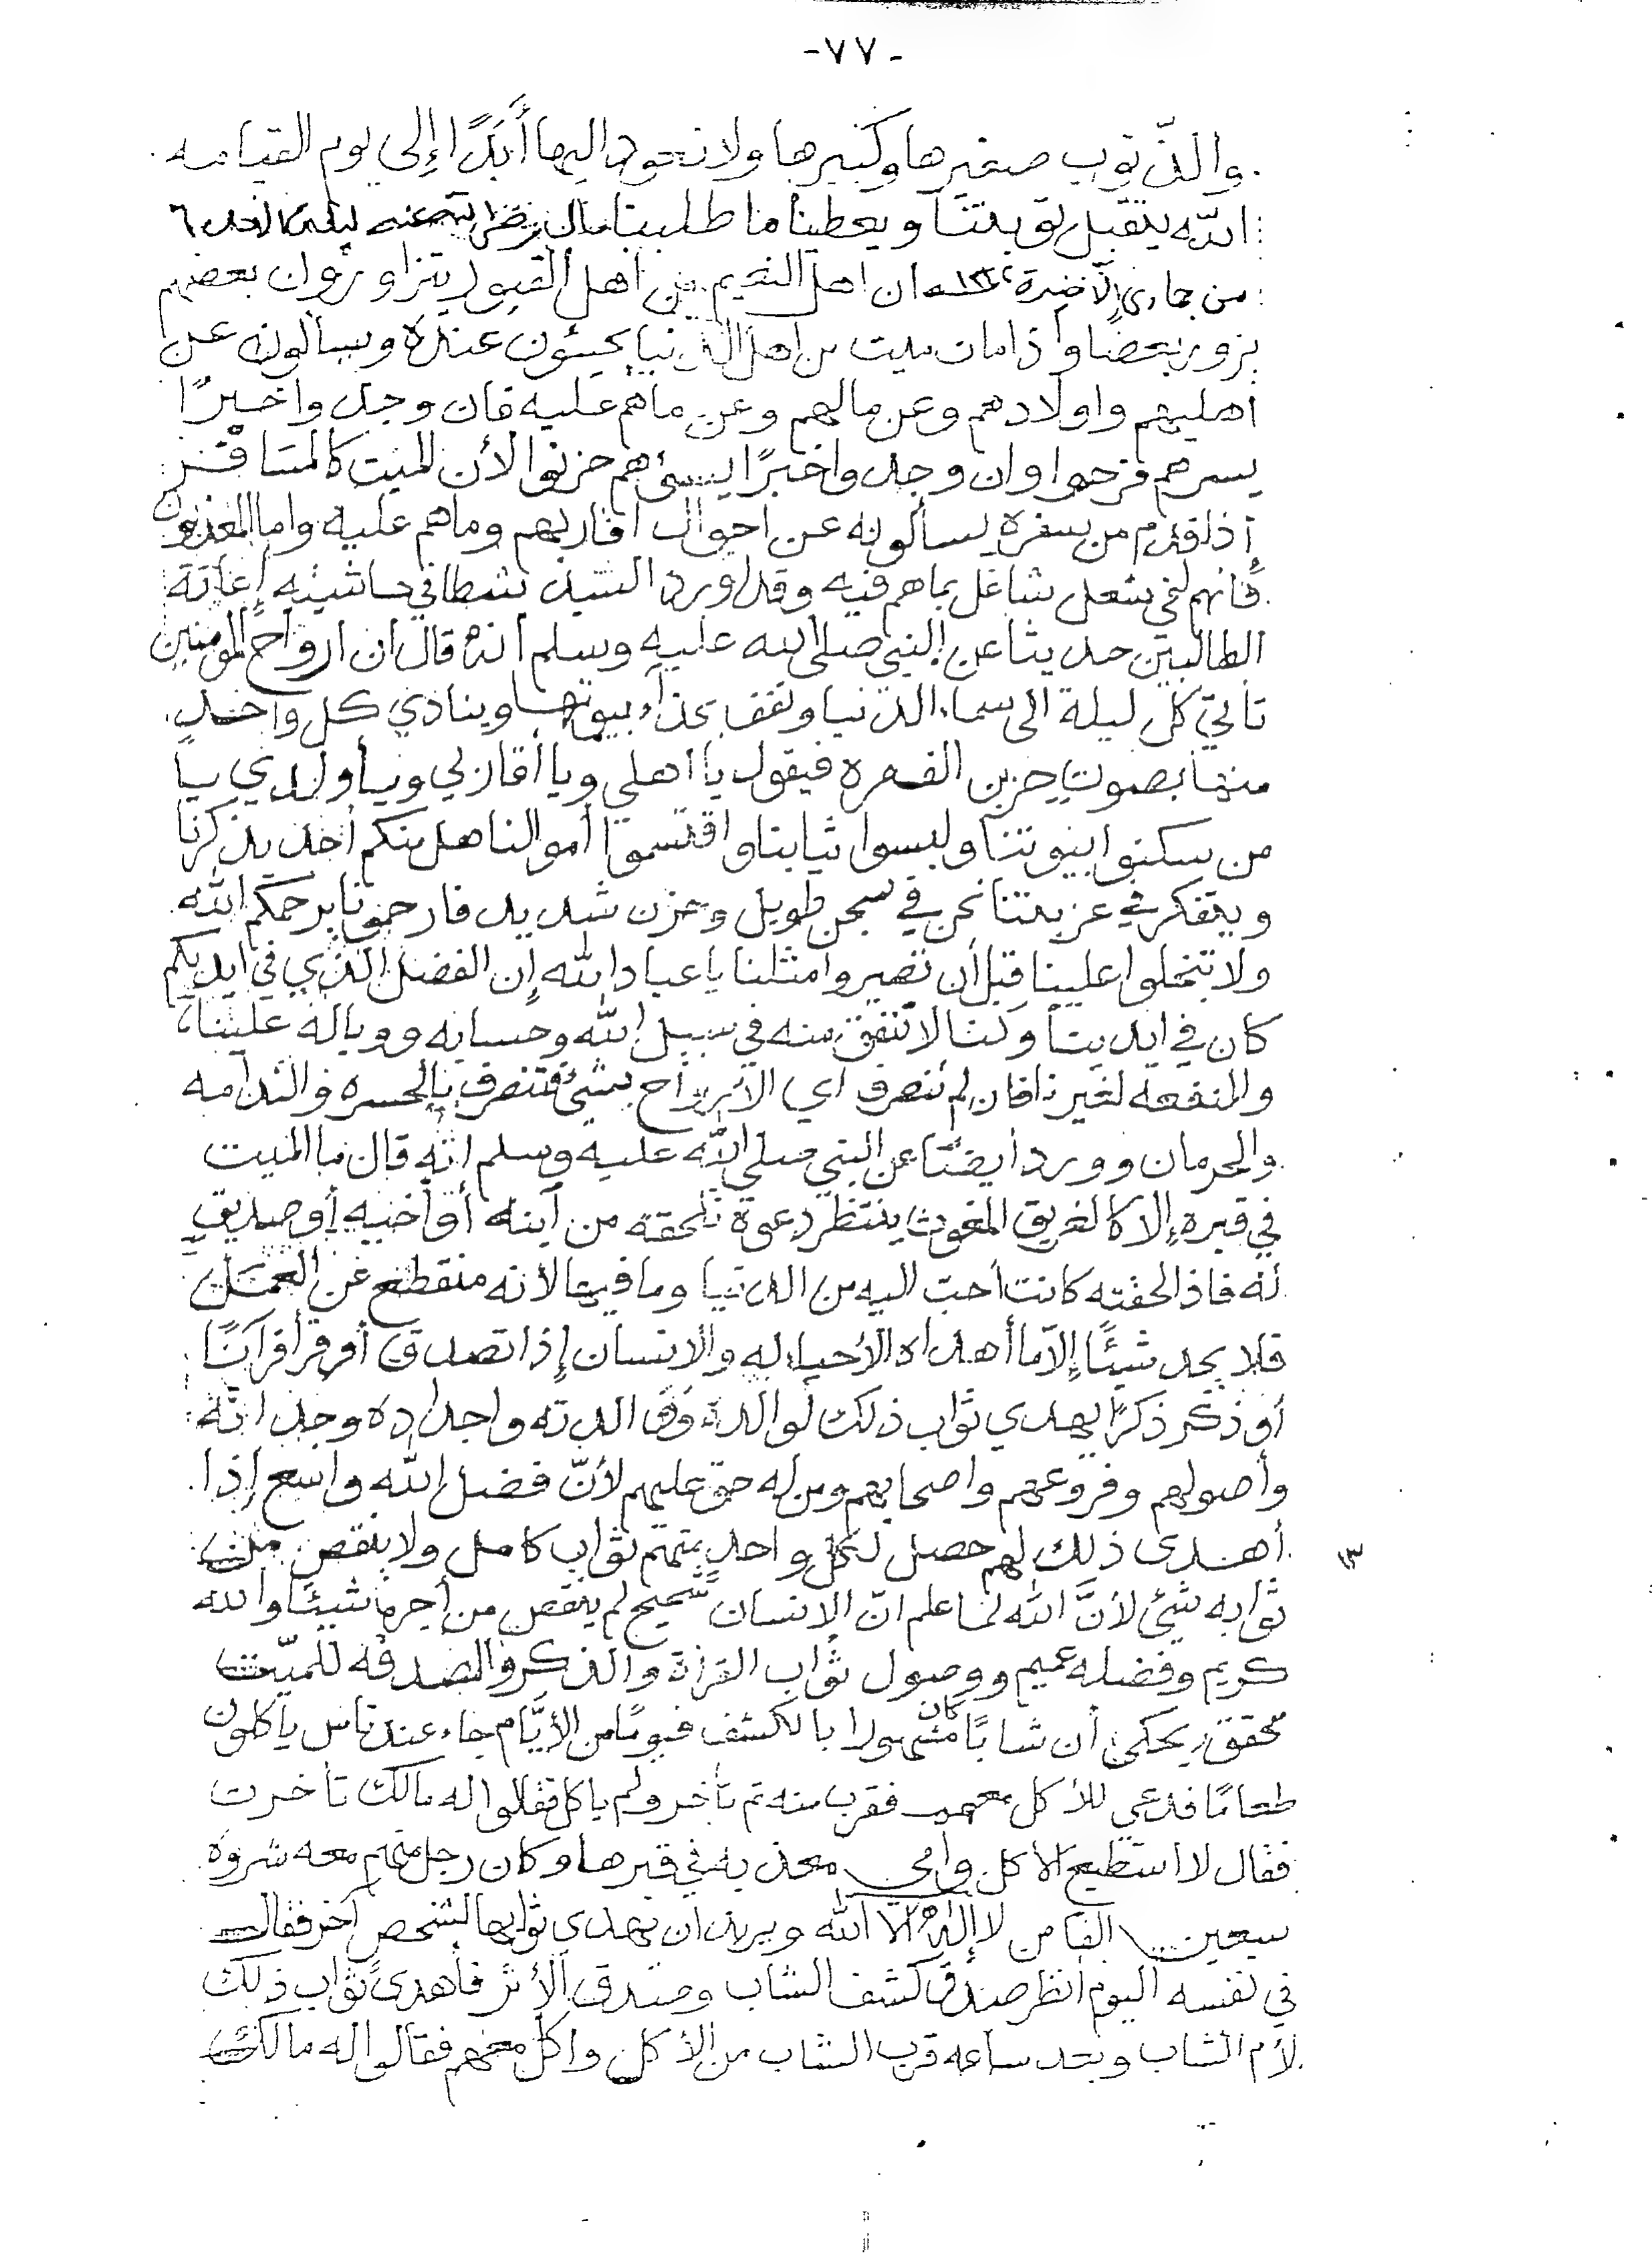 -٧٧-
والذّنوب صغيرها وكبيرها ولا نعود اليها أبَدًا إلى يوم القيامه
الله يتقبل توبتنا ويعطينا ما طلبنا قال رضي الله عنه ليلة الاحد ٦
من جمادى الأخيرة ان اهل النعيم من أهل القبور يتزاورون بعضهم
يزور بعضًا واذا مات ميت من اهل الدنيا يجيئون عنده ويسألونه عن
اهليهم واولادهم وعن مالهم وعن ماهم عليه فان وجدوا خيرًا
يسرهم فرحوا وان وجدوا خبرًا يسوءهم حزنوا لأن الميت كالمسافر
إذا قدم من سفره يسألونه عن احوال اقاربهم وماهم عليه واما المعذبون
فانهم لفي شغل شاغل بماهم فيه وقد اورد السيد شطا في حاشيته إعانة
الطالبين حديثا عن النبي صلى الله عليه وسلم انهُ قال ان ارواح المؤمنين
تأتي كل ليلة الى سماء الدنيا وتقف بحذاء بيوتها وينادي كل واحد
منها بصوت حزين الف مره فيقول يا أهلي ويا أقاربي ويا ولدي يا
من سكنوا بيوتنا ولبسوا ثيابنا واقتسموا أموالنا هل منكم أحد يذكرنا
ويتفكر في غربتنا نحن في سجن طويل وحزن شديد فارحمونا يرحمكم الله
ولا تبخلوا علينا قبل أن تصيروا مثلنا يا عباد الله إن الفضل الذي في ايديكم
كان في ايدينا وكنا لا ننفق منه في سبيل الله وحسابه ووباله علينا
والمنفعه لغيرنا فان لم تنصرف اي الارواح بشئ فتنصرف بالحسره والندامه
والحرمان وورد أيضًا عن النبي صلى الله عليه وسلم انّه قال ما الميت
في قبره إلا كالغريق المغوث ينتظر دعوة تلحقه من أبنه أو أخيه أو صديق
له فاذا لحقته كانت أحب اليه من الدنيا وما فيها لأنه منقطع عن العمل
فلا يجد شيئًا إلّا ما أهداه الأحياء له والانسان إذا تصدق أو قرأ قرآنًا
أو ذكر ذكرًا يهدي ثواب ذلك لوالده ووالدته واجداده وجداته
وأصولهم وفروعهم واصحابهم ومن له حق عليهم لأنّ فضل الله واسع إذا
أهدى ذلك لهم حصل لكل واحد منهم ثواب كامل ولا ينقص من
ثوابه شئ لأنَّ الله لما علم انّ الإنسان شحيح لم ينقص من أجره شيئًا والله
كريم وفضله عميم ووصول ثواب القراءة والذكر والصدقه للميّت
محقق يحكى أن شابًا كان مشهورا بالكشف فيومًا من الأيّام جاء عند ناس يأكلون
طعامًا فدعي للأكل معهم فقرب منه ثم تأخر ولم ياكل فقالوا له مالك تأخرت
فقال لا استطيع الأكل وامي معذبه في قبرها وكان رجل منهم معه ثروة
سبعين الفا من لا إلهَ الا الله ويريد ان يهدي ثوابها لشخص آخر فقال
في نفسه اليوم انظر صدق كشف الشاب وصدق الأثر فأهدى ثواب ذلك
لأم الشاب وبعد ساعه قرب الشاب من الأكل وأكل معهم فقالوا له مالك